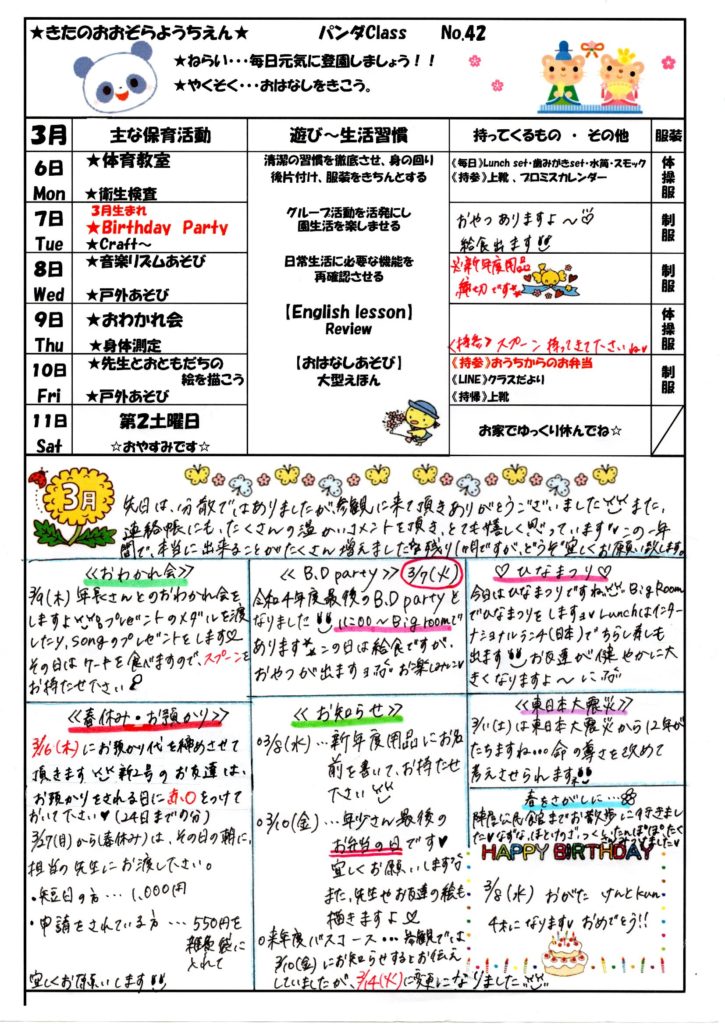 ★きたのおおぞらようちえん★　パンダClass　No.42
★ねらい・・・毎日元気に登園しましょう！！
★やくそく・・・おはなしをきこう。
3月　主な保育活動　遊び～生活習慣　持ってくるもの ・ その他　服装
6日 Mon
★体育教室
★衛生検査
清潔の習慣を徹底させ、身の回り
後片付け、服装をきちんとする
《毎日》Lunch set・歯みがきset・水筒・スモック
《持参》上靴、プロミスカレンダー
体操服
7日 Tue
3月生まれ
★Birthday Party
★Craft～
グループ活動を活発にし
園生活を楽しませる
おやつありますよ～♡
給食出ます
制服
8日 Wed
★音楽リズムあそび
★戸外あそび
日常生活に必要な機能を
再確認させる
※新年度用品
締切です
制服
9日 Thu
★おわかれ会
★身体測定
【English lesson】
Review
《持参》スプーン持ってきて下さいね
体操服
10日 Fri
★先生とおともだちの
絵を描こう
★戸外あそび
【おはなしあそび】
大型えほん
《持参》おうちからのお弁当
《LINE》クラスだより
《持帰》上靴
制服
11日 Sat
第2土曜日
☆おやすみです☆
お家でゆっくり休んでね☆
3月
先日は、分散ではありましたが、参観に来て頂きありがとうございました また、
連絡帳にも、たくさんの温かいコメントを頂き、とても嬉しく思っています この一年
間で、本当に出来ることがたくさん増えました 残り1ヶ月ですが、どうぞ宜しくお願い致します。
≪おわかれ会≫
3/9(木) 年長さんとのおわかれ会を
しますよ プレゼントのメダルを渡し
たり、Songのプレゼントをします♡
その日はケーキを食べますので、スプーンを
お持たせ下さい
≪B.D party≫ 3/7(火)
令和4年度最後のB.D partyと
なりました 11:00～Big roomで
あります この日は給食ですが、
おやつが出ますョ お楽しみに
♡ひなまつり♡
今日はひなまつりですね Big Room
でひなまつりをしますョ Lunchはインター
ナショナルランチ(日本)でちらし寿しも
出ます お友達が健やかに大
きくなりますよ～に
≪春休み・お預かり≫
3/16(木)にお預かり代を締めさせて
頂きます 新2号のお友達は、
お預かりをされる日に赤い○をつけて
おいて下さい (24日までの分)
3/27(月)から(春休み)は、その日の朝に、
担当の先生にお渡し下さい。
・短日の方…1,000円
・申請をされている方…550円を
雑費袋に
入れて
宜しくお願いします
≪お知らせ≫
○3/8(水)…新年度用品にお名
前を書いて、お持たせ
下さい
○3/10(金)…年少さん最後の
お弁当の日です
宜しくお願いします
また、先生やお友達の絵も
描きますよ♡
○来年度バスコース…参観では
3/10(金)にお知らせするとお伝え
していましたが、3/14(火)に変更になりました
≪東日本大震災≫
3/11(土)は東日本大震災から12年が
たちますね… 命の尊さを改めて
考えさせられます
春をさがしに…
公民館までお散歩に行きまし
た なずな、ほとけのざ、つくし、たんぽぽ たく
HAPPY BIRTHDAY
3/8(水) おがた けんとkun
4才になります おめでとう!!